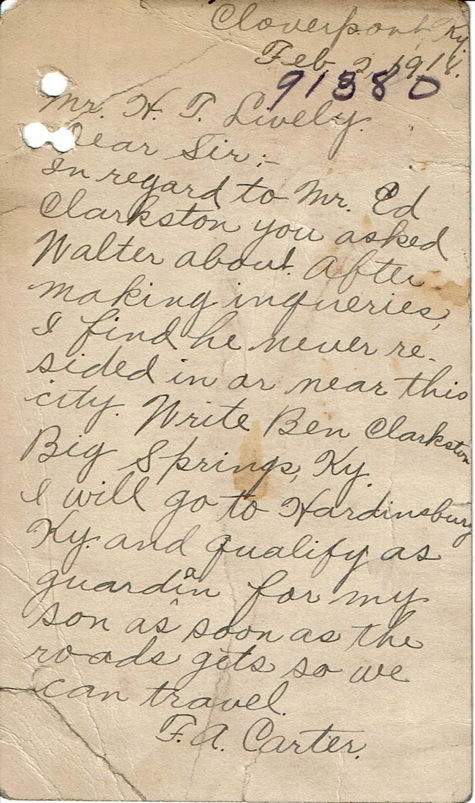 Cloverport, Ky.
Feb. 2, 1918.
91380
Mr. H. T. Lively.
Dear Sir:-
In regard to Mr. Ed
Clarkston you asked
Walter about. After
making inqueries,
I find he never re-
sided in or near this
city. Write Ben Clarkston
Big Springs, Ky.
I will go to Hardinsburg
Ky. and qualify as
guardian for my
son as soon as the
roads gets so we
can travel.
F. A. Carter.